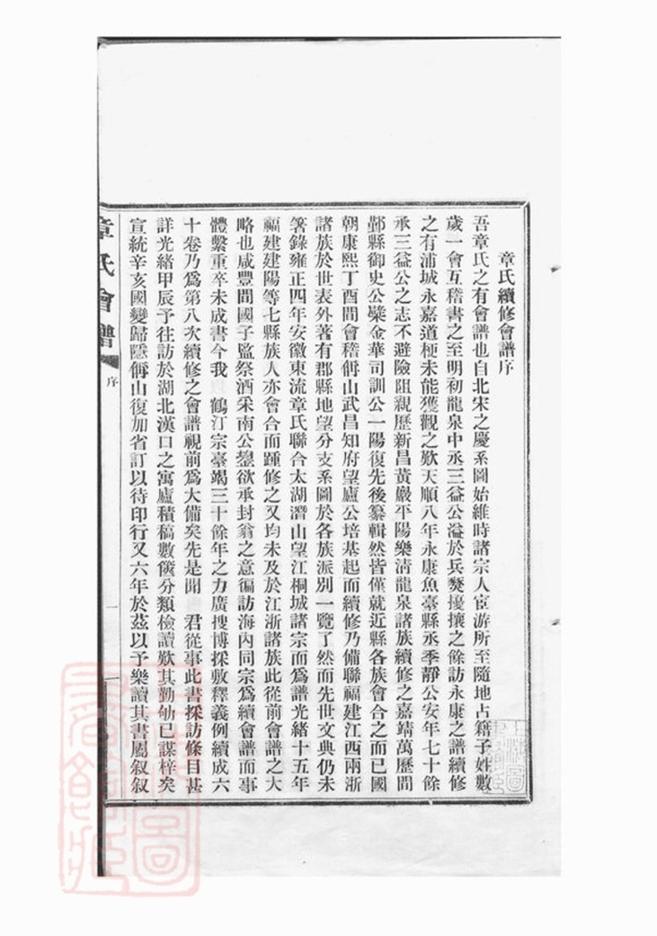 章氏續修會譜序
吾章氏之有會譜也自北宋之慶系圖始維時諸宗人宦游所至隨地占籍子姓數
歲一會互稽書之至明初龍泉中丞三益公溢於兵燹擾攘之餘訪永康之譜續修
之有浦城永嘉道梗未能獲觀之歎天順八年永康魚臺縣丞季靜公安年七十餘
承三益公之志不避險阻親歷新昌黃巖平陽樂清龍泉諸族續修之嘉靖萬歷間
鄞縣御史公檗金華司訓公一陽復先後纂輯然皆僅就近縣各族會合之而已國
朝康熙丁酉間會稽偁山武昌知府望廬公培基起而續修乃備聯福建江西兩浙
諸族於世表外著有郡縣地望分支系圖於各族派別一覽了然而先世文典仍未
箸錄雍正四年安徽東流章氏聯合太湖潛山望江桐城諸宗而為譜光緒十五年
福建建陽等七縣族人亦會合而踵修之又均未及於江浙諸族此從前會譜之大
略也咸豐間國子監祭酒采南公鋆欲承封翁之意徧訪海內同宗為續會譜而事
體繫重卒未成書今我 鶴汀宗臺竭三十餘年之力廣搜博採敷釋義例續成六
十卷乃為第八次續修之會譜視前為大備矣先是聞 君從事此書採訪條目甚
詳光緒甲辰予往訪於湖北漢口之寓廬積稿數篋分類檢讀歎其勤劬已謀梓矣
宣統辛亥國變歸隱偁山復加省訂以待印行又六年於茲以予樂讀其書屬敘敘
章氏會譜
序
一